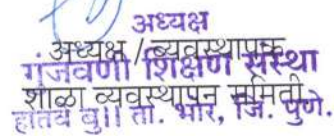 अध्यक्ष
अध्यक्ष / व्यवस्थापक
गुंजवणी शिक्षण संस्था
शाळा व्यवस्थापन समिती
हातवे बु॥ ता. भोर, जि. पुणे.